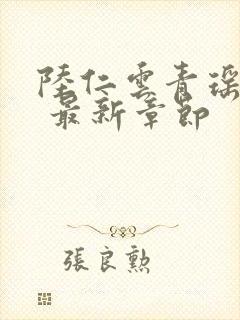 陸仁雲青瑶
最新章節
張良勲